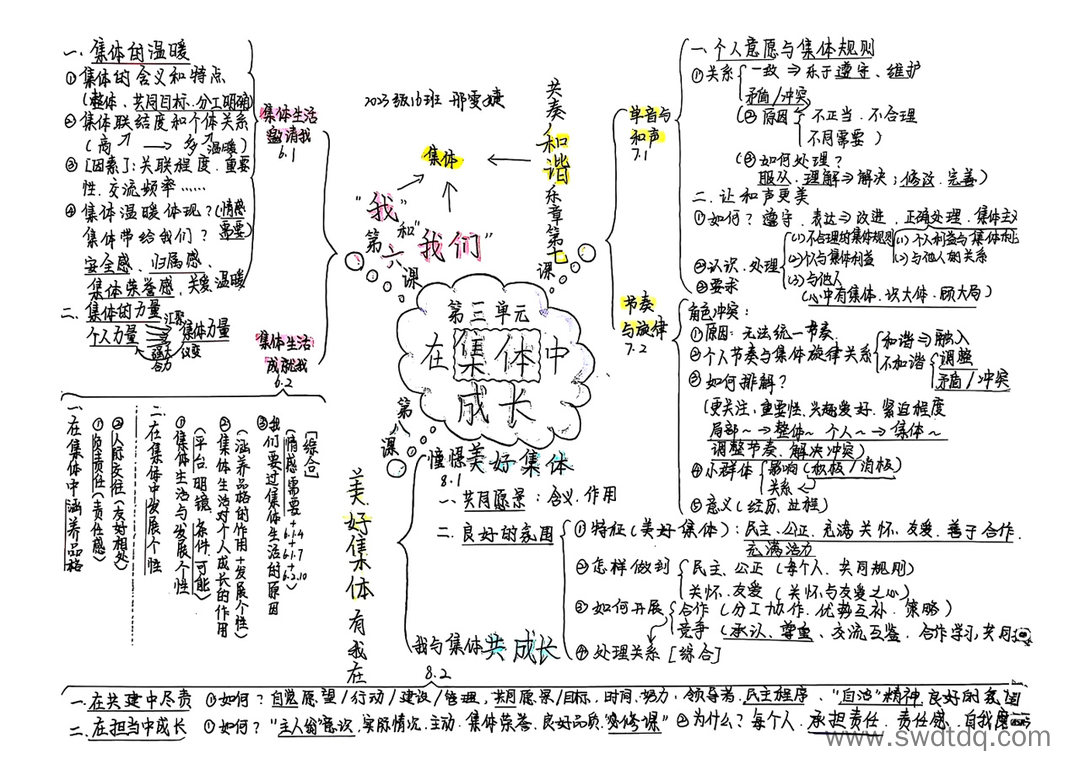 2023级16班 邢雯婕
第三单元
在集体中
成长
第六课
"我"
和
"我们"
集体
集体生活
邀请我
6.1
一.集体的温暖
①集体的含义和特点
(整体、共同目标.分工明确)
②集体联结度和个体关系
(高 → 多 温暖)
③[因素]:关联程度.重要
性.交流频率……
④集体温暖体现?(情感
需要)
集体带给我们?
安全感、归属感、
集体荣誉感,关爱 温暖
二.集体的力量
个人力量
汇聚
集体力量
合力
集体生活
成就我
6.2
一.在集体中涵养品格
①负责任(责任感)
②人际交往(友好相处)
二.在集体中发展个性
①集体生活与发展个性
(平台.明镜.条件.可能)
②集体生活对个人成长的作用
(涵养品格的作用+发展个性)
③我们要过集体生活的原因
(情感需要+6.1.4+6.1.7+6.2.10
[综合]
共奏和谐乐章第七课
单音与
和声
7.1
一.个人意愿与集体规则
①关系
一致⇒乐于遵守、维护
矛盾/冲突
②原因
不正当.不合理
不同需要)
③如何处理?
服从.理解⇒解决:修改.完善)
二.让和声更美
①如何?遵守.表达⇒改进.正确处理.集体主义
②认识.处理
(1)不合理的集体规则
(2)个人与集体利益
(3)与他人
(1)个人利益与集体利益
(2)与他人的关系
③要求
(心中有集体.识大体.顾大局)
节奏
与旋律
7.2
角色冲突:
①原因:无法统一节奏
②个人节奏与集体旋律关系
和谐⇒融入
不和谐
调整
矛盾/冲突
③如何排解?
(更关注.重要性.兴趣爱好.紧迫程度
局部~→整体~ 个人~→集体~
调整节奏.解决冲突)
④小群体
影响(积极/消极)
关系
⑤意义(经历.过程)
第八课
美好集体有我在
憧憬美好集体
8.1
一.共同愿景:含义.作用
二.良好的氛围
①特征(美好集体):民主、公正.充满关怀、友爱.善于合作.
充满活力
②怎样做到
民主、公正(每个人.共同规则)
关怀.友爱(关怀与友爱之心)
③如何开展
合作(分工协作.优势互补.策略)
竞争(承认、尊重、交流互鉴.合作学习,共同
④处理关系[综合]
我与集体共成长
8.2
一.在共建中尽责 ①如何?自觉愿望/行动/建设/管理,共同愿景/目标,时间.努力.领导者.民主程序、"自治"精神 良好的氛围
二.在担当中成长 ①如何?"主人翁"意识,实际情况.主动.集体荣誉.良好品质."必修课" ②为什么?每个人.承担责任.责任感.自我
www.swdtdq.com